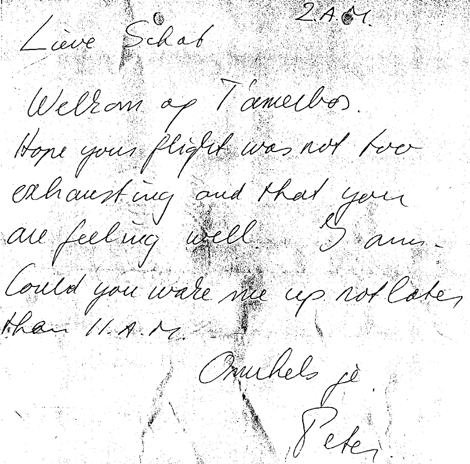 2 A.M.
Lieve Schat
Welkom op Tamerbos.
Hope your flight was not too
exhausting and that you
are feeling well.
Could you wake me up not later
than 11. A.M.
Omhels je.
Peter.